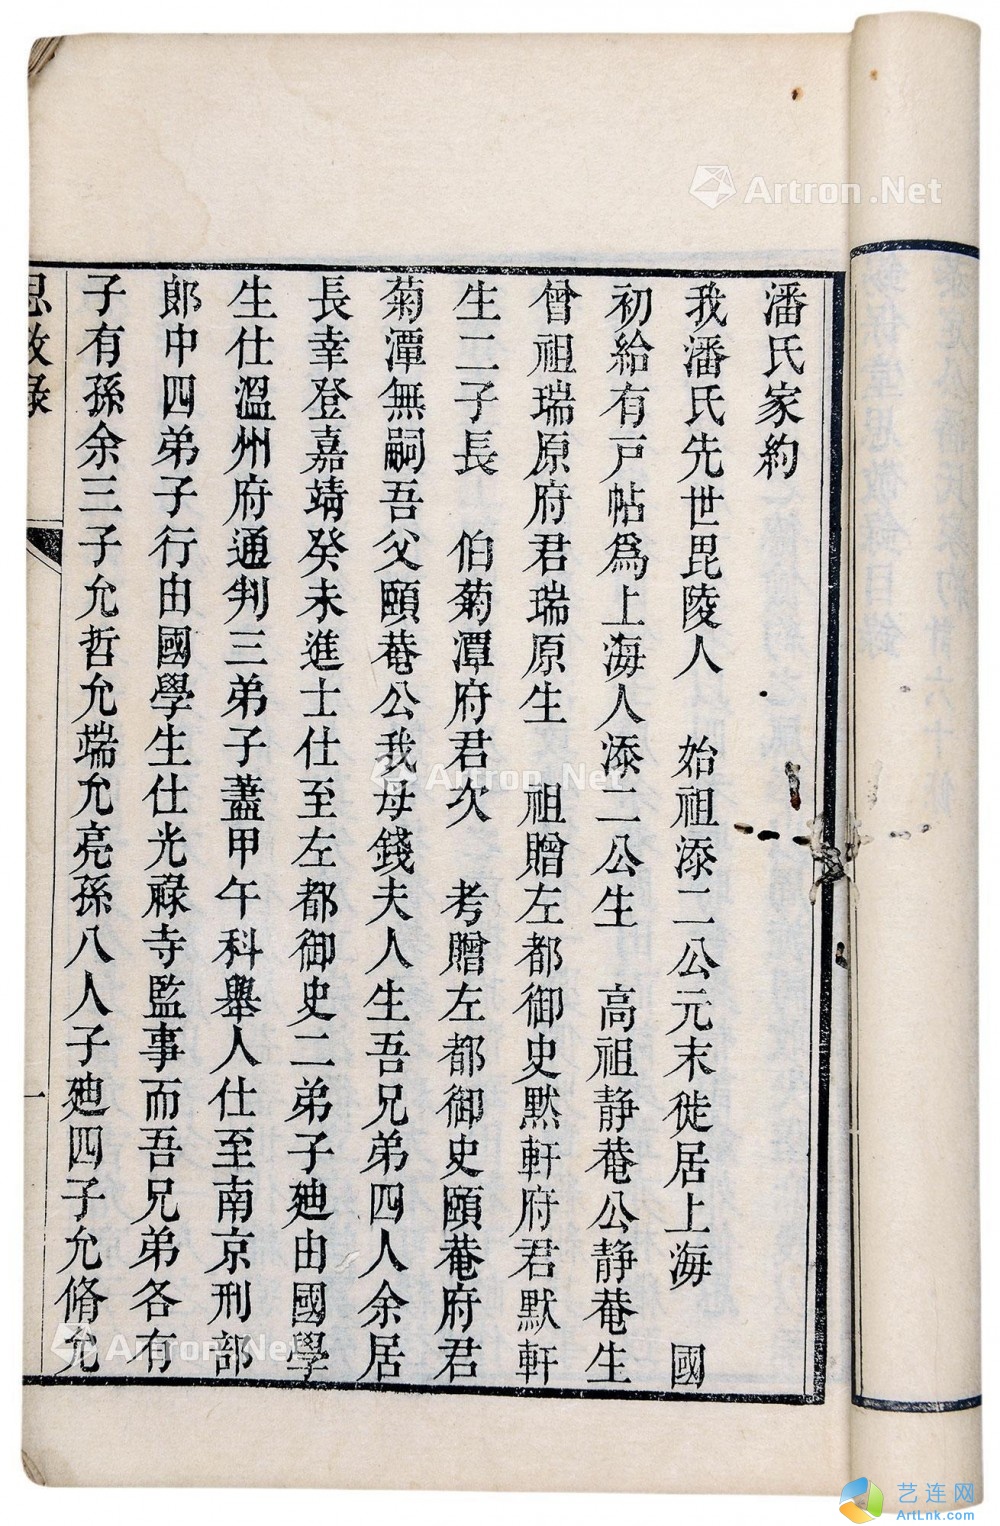 潘氏家約
我潘氏先世毘陵人　始祖添二公元末徙居上海　國
初給有戸帖爲上海人添二公生　高祖靜菴公靜菴生
曾祖瑞原府君瑞原生　祖贈左都御史默軒府君默軒
生二子長　伯菊潭府君次　考贈左都御史頤菴府君
菊潭無嗣吾父頤菴公我母錢夫人生吾兄弟四人余居
長幸登嘉靖癸未進士仕至左都御史二弟子廸由國學
生仕溫州府通判三弟子藎甲午科舉人仕至南京刑部
郎中四弟子行由國學生仕光祿寺監事而吾兄弟各有
子有孫余三子允哲允端允亮孫八人子廸四子允脩允
思敬錄
一
Artron.Net
Artron.Net
Artron.Net
艺连网
ArtLnk.com